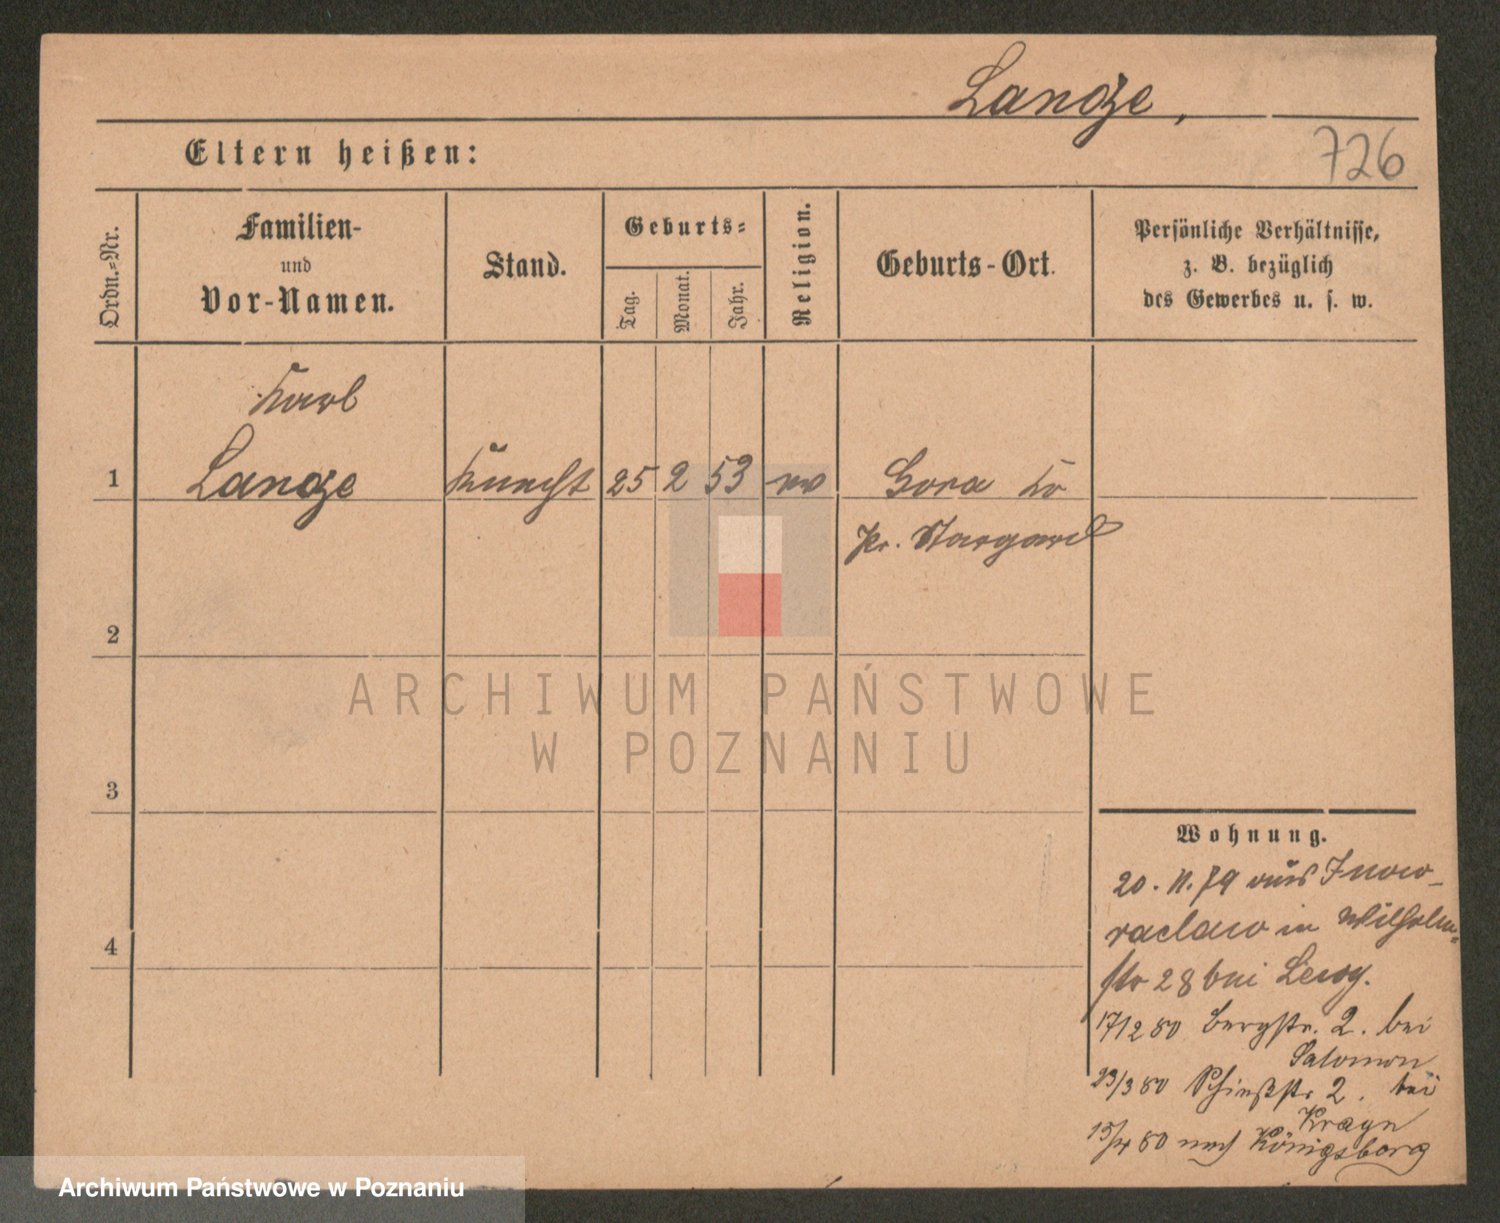 Lange,
726
Eltern heißen:
Ordn.-Nr.
Familien-
und
Vor-Namen.
Stand.
Geburts-
Tag.
Monat.
Jahr.
Religion.
Geburts-Ort.
Persönliche Verhältnisse,
z. B. bezüglich
des Gewerbes u. s. w.
Karl
1 Lange Knecht 25 2 53 Gora
Pr. Stargard
2
3
4
ARCHIWUM PAŃSTWOWE
W POZNANIU
Wohnung.
20. 11. 79 aus Inow-
raclaw in Wilhelm-
str 28 bei Lewy.
17/2 80 Bergstr. 2. bei
Salomon
23/3 80 Schießstr 2. bei
Krayn
15/4 80 nach Königsberg
Archiwum Państwowe w Poznaniu